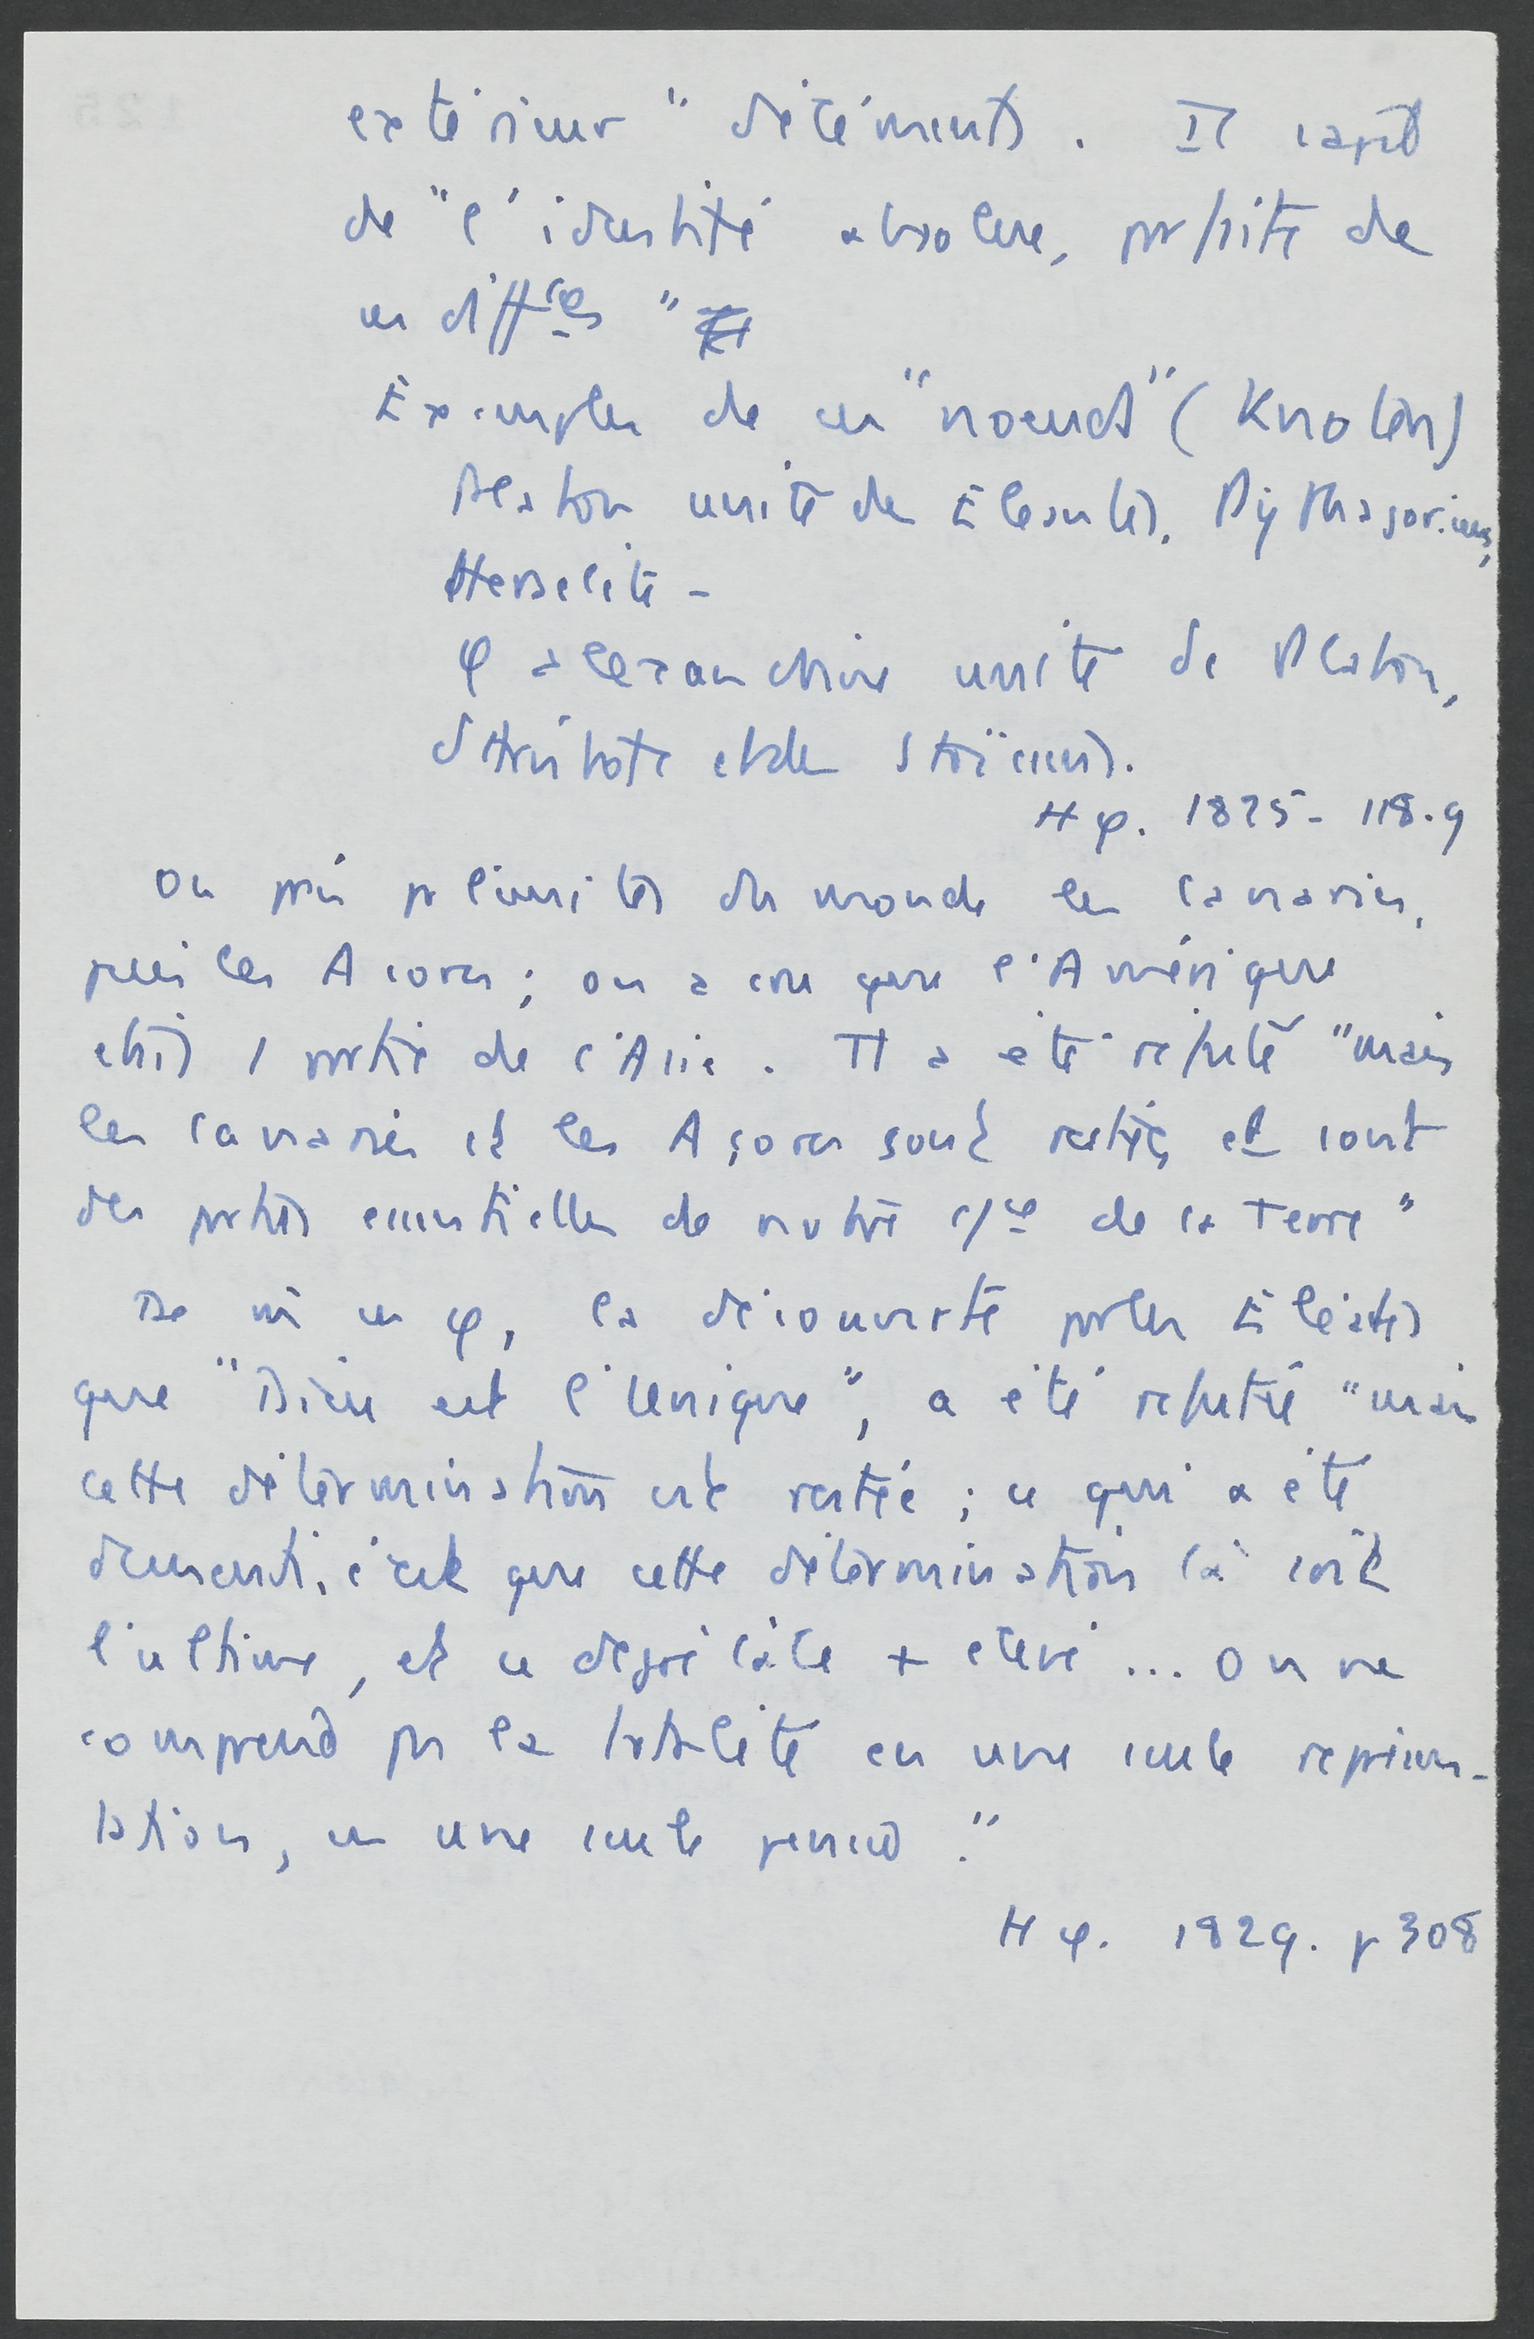 extérieur" d'éléments. Il s'agit
de "l'identité absolue, parfaite de
ces diffces"
Exemples de ces "noeuds" (Knoten)
Platon unité des Eléantes, Pythagoriciens,
Heraclite -
φ alexandrine unité de Platon,
d'Aristote et des Stoïciens.
H φ. 1825 - 118.9
On prit pr limites du monde les Canaries,
puis les Açores ; on a cru que l'Amérique
était 1 partie de l'Asie. Il a été réfuté "mais
les Canaries et les Açores sont restées et sont
des parties essentielles de notre csce de la Terre"
De m̂ en φ, la découverte par les Eléates
que "Dieu est l'Unique", a été réfutée "mais
cette détermination est restée ; ce qui a été
démenti, c'est que cette détermination là soit
l'ultime, et ce degré là le + élevé ... On ne
comprend pas la totalité en une seule représen-
tation, en une seule pensée."
H φ. 1829. p 308